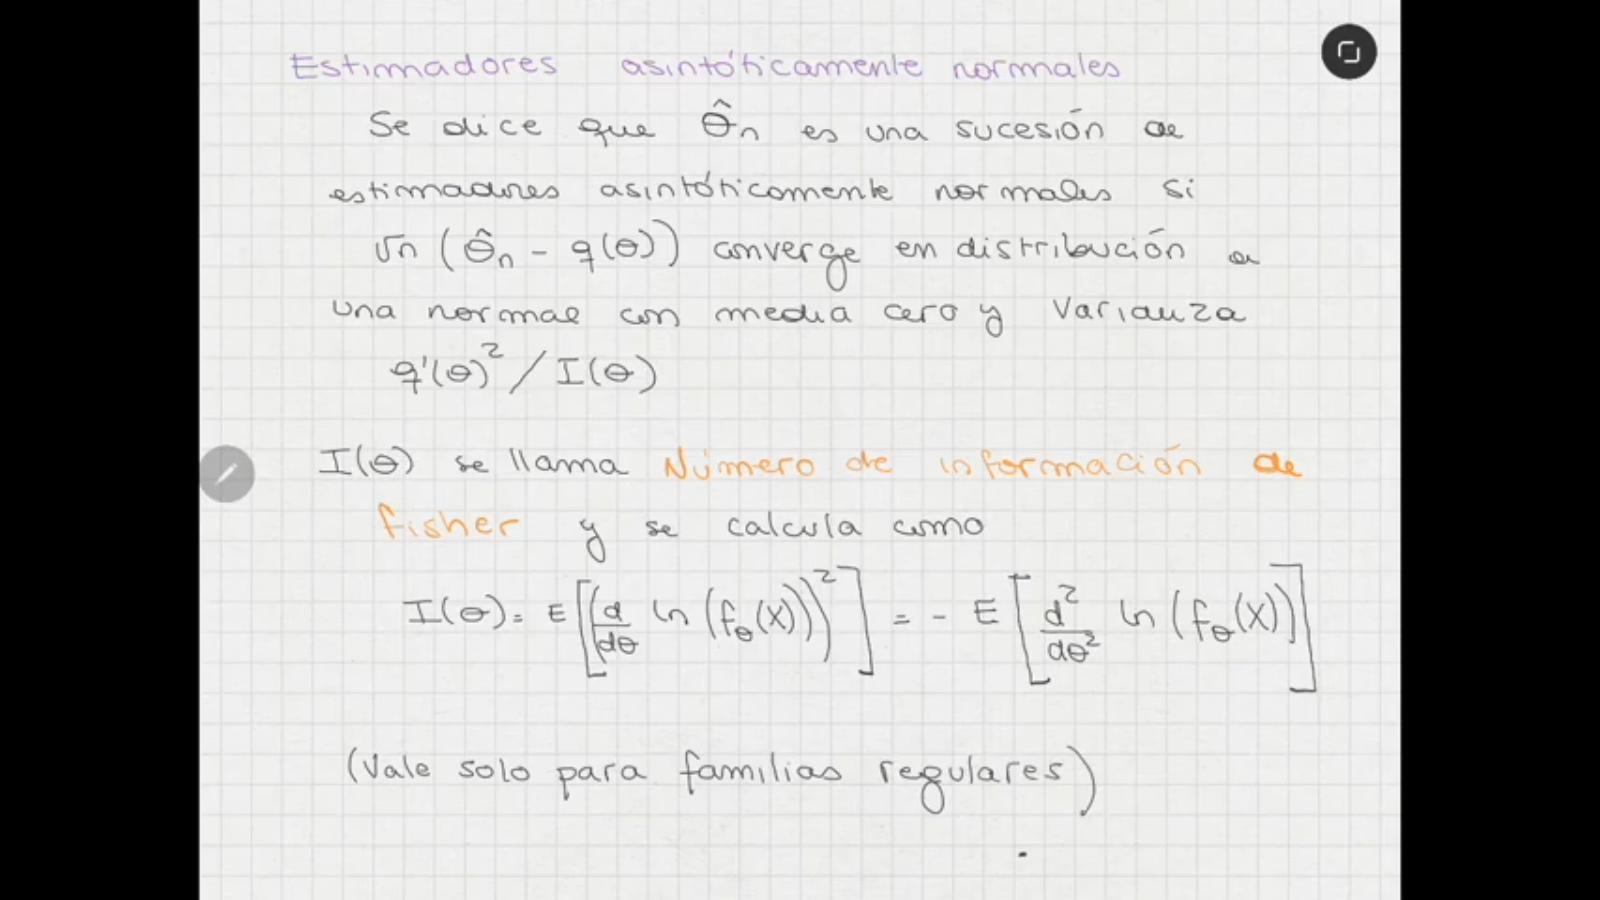 Estimadores asintóticamente normales
Se dice que θ̂n es una sucesión de
estimadores asintóticamente normales si
√n (θ̂n - q(θ)) converge en distribución a
una normal con media cero y varianza
q'(θ)² / I(θ)
I(θ) se llama Número de información de
fisher y se calcula como
I(θ) = E[(d/dθ ln (fθ(X)))²] = - E[d²/dθ² ln (fθ(X))]
(Vale solo para familias regulares)